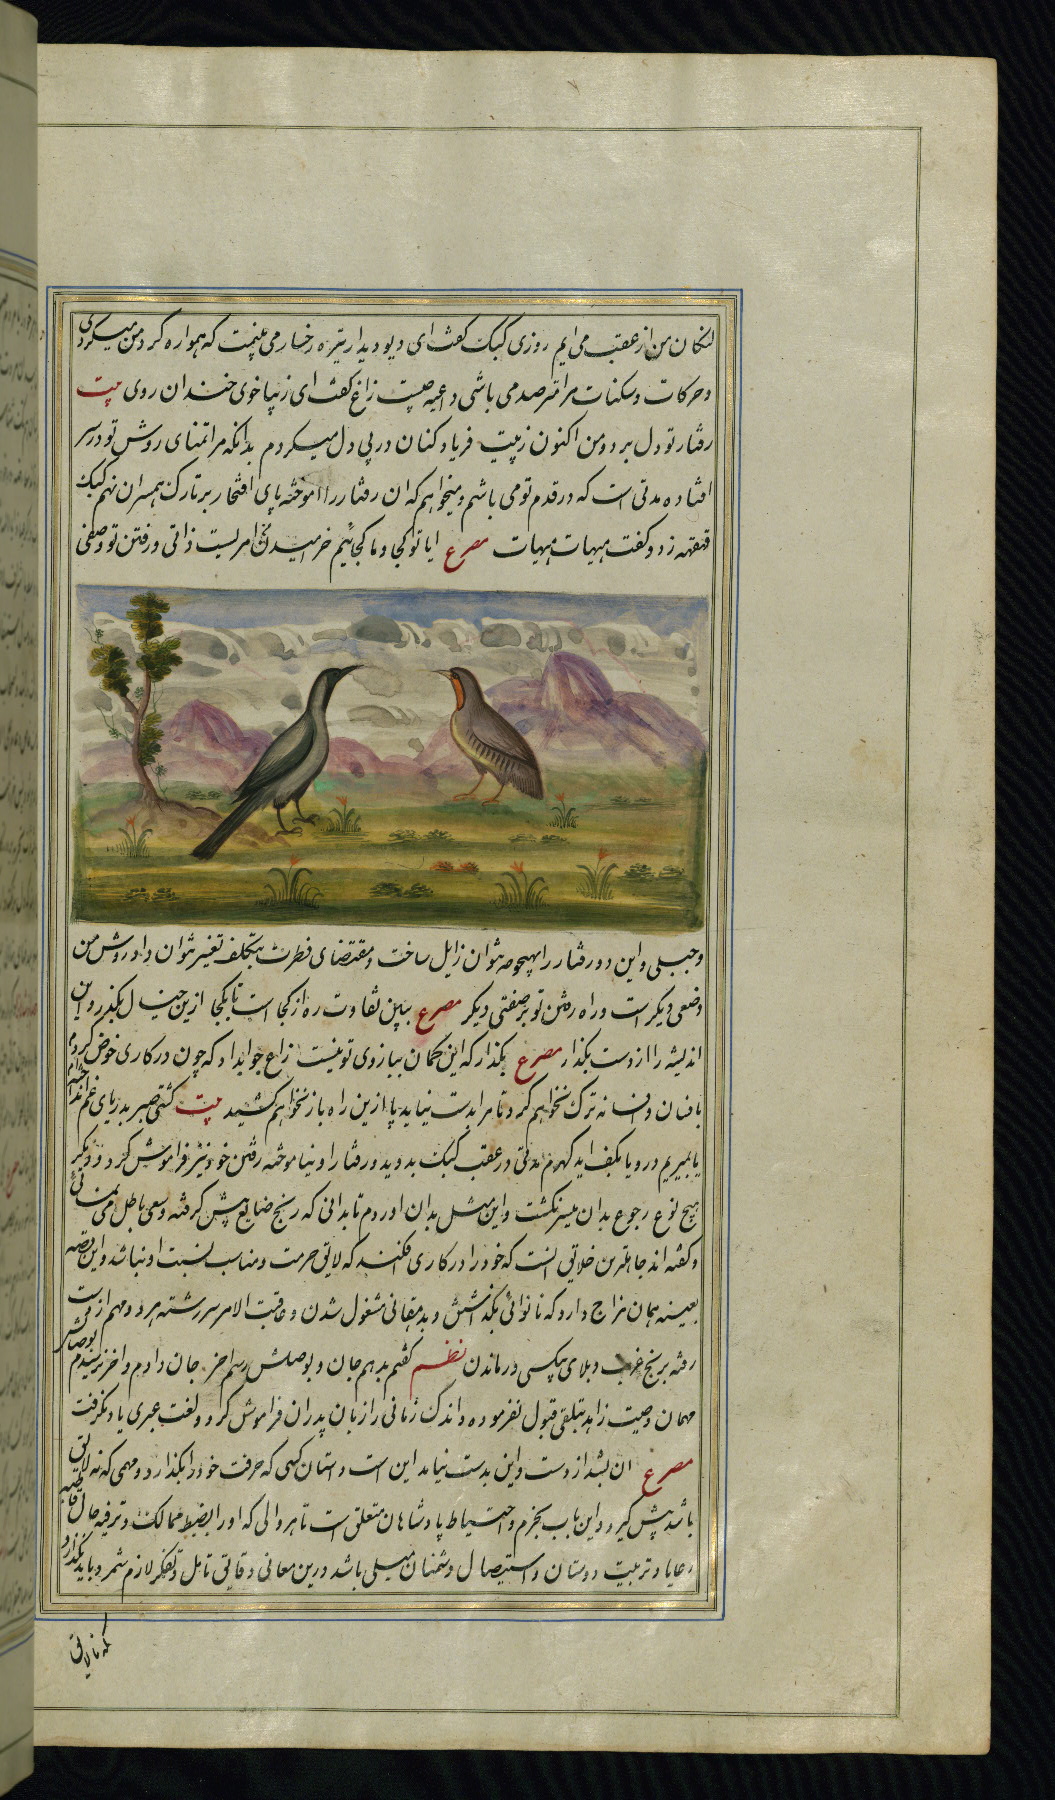 لنکان من از عقب می ایم روزی کبک گفت ای دیو دیدار تیره رخسار می بینمت که همواره گرد من میگردی
و حرکات و سکنات مرا مترصد می باشی داعیه چیست زاغ گفت ای زیبا خوی خندان روی بیت
رفتار تو دل برد و من اکنون زپیت فریاد کنان در پی دل میگردم بدانکه مرا تمنای روش تو در سر
افتاده مدتی است که در قدم تو می باشم و میخواهم که ان رفتار را اموخته پای افتخار بر تارک همسران نهم کبک
قهقهه زد و گفت هیهات هیهات مصرع ایا تو کجا و ما کجائیم خرامیدن من امریست ذاتی و رفتن تو وصفی
و جبلی و این دو رفتار را بهیچوجه نتوان زایل ساخت و مقتضای فطرت بتکلف تغییر نتوان داد روش من
وضعی دیگر است و راه رفتن تو بر صفتی دیگر مصرع ببین تفاوت ره از کجا است تا بکجا ازین خیال بگذر و این
اندیشه را از دست بگذار مصرع بگذار که این کمان ببازوی تو نیست زاغ جواب داد که چون در کاری خوض کردم
بافسان و افسانه ترک نخواهم کرد و تا مرا بدست نیاید پا ازین راه باز نخواهم کشید بیت کشتی صبر بدریای غم انداخته‌ایم
یا بمیریم درو یا بکف اید گهرم مدتی در عقب کبک بدوید و رفتار او نیاموخته رفتن خود نیز فراموش کرد و دیگر
بهیچ نوع رجوع بدان میسر نگشت و این مثل بدان اوردم تا بدانی که رنج ضایع پیش گرفته و سعی باطل می نمائی
و گفته اند جاهلترین خلایق انست که خود را در کاری فکند که لایق حرمت و مناسب نسبت او نباشد و این قصه
بعینه همان مزاج دارد که نانوائی بگذاشتن و بدهقانی مشغول شدن و عاقبت الامر سررشته هر دو مهم از دست
رفته برنج غربت و بلای بیکسی درماندن نظم گفتم بدهم جان و بوصلش برسم اخر جان دادم و اخر نرسیدم بوصالش
مهمان وصیت زاهد بتلقی قبول نفرموده و اندک زمانی را زبان پدران فراموش کرد و لغت عبری یاد نگرفت
مصرع ان بشد از دست و این بدست نیامد این است داستان کسی که حرفت خود را بگذارد و مهمی که نه لایق
باشد پیش گیرد و این باب بحزم و احتیاط پادشاهان متعلق است تا هر والی که او را بضبط ممالک و ترفیه حال قاطبه
رعایا و تربیت دوستان و استیصال دشمنان میلی باشد درین معانی دقایق تامل و تفکر لازم شمرد و باید نگذارد
که نا لایق